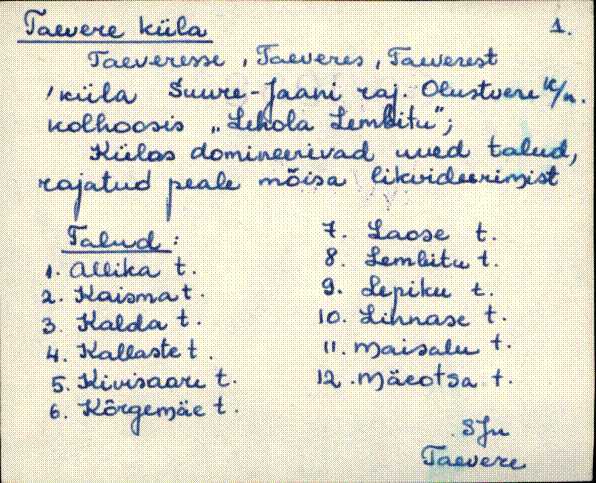 Taevere küla
1.
Taeveresse, Taeveres, Taeverest
küla Suure-Jaani raj. Olustvere k/n.
kolhoosis „Lehola Lembitu";
Külas domineerivad uued talud,
rajatud peale mõisa likvideerimist
Talud:
1. Allika t.
2. Kaisma t.
3. Kalda t.
4. Kallaste t.
5. Kivisaare t.
6. Kõrgemäe t.
7. Laose t.
8. Lembitu t.
9. Lepiku t.
10. Linnase t.
11. Maisalu t.
12. Mäeotsa t.
SJn
Taevere